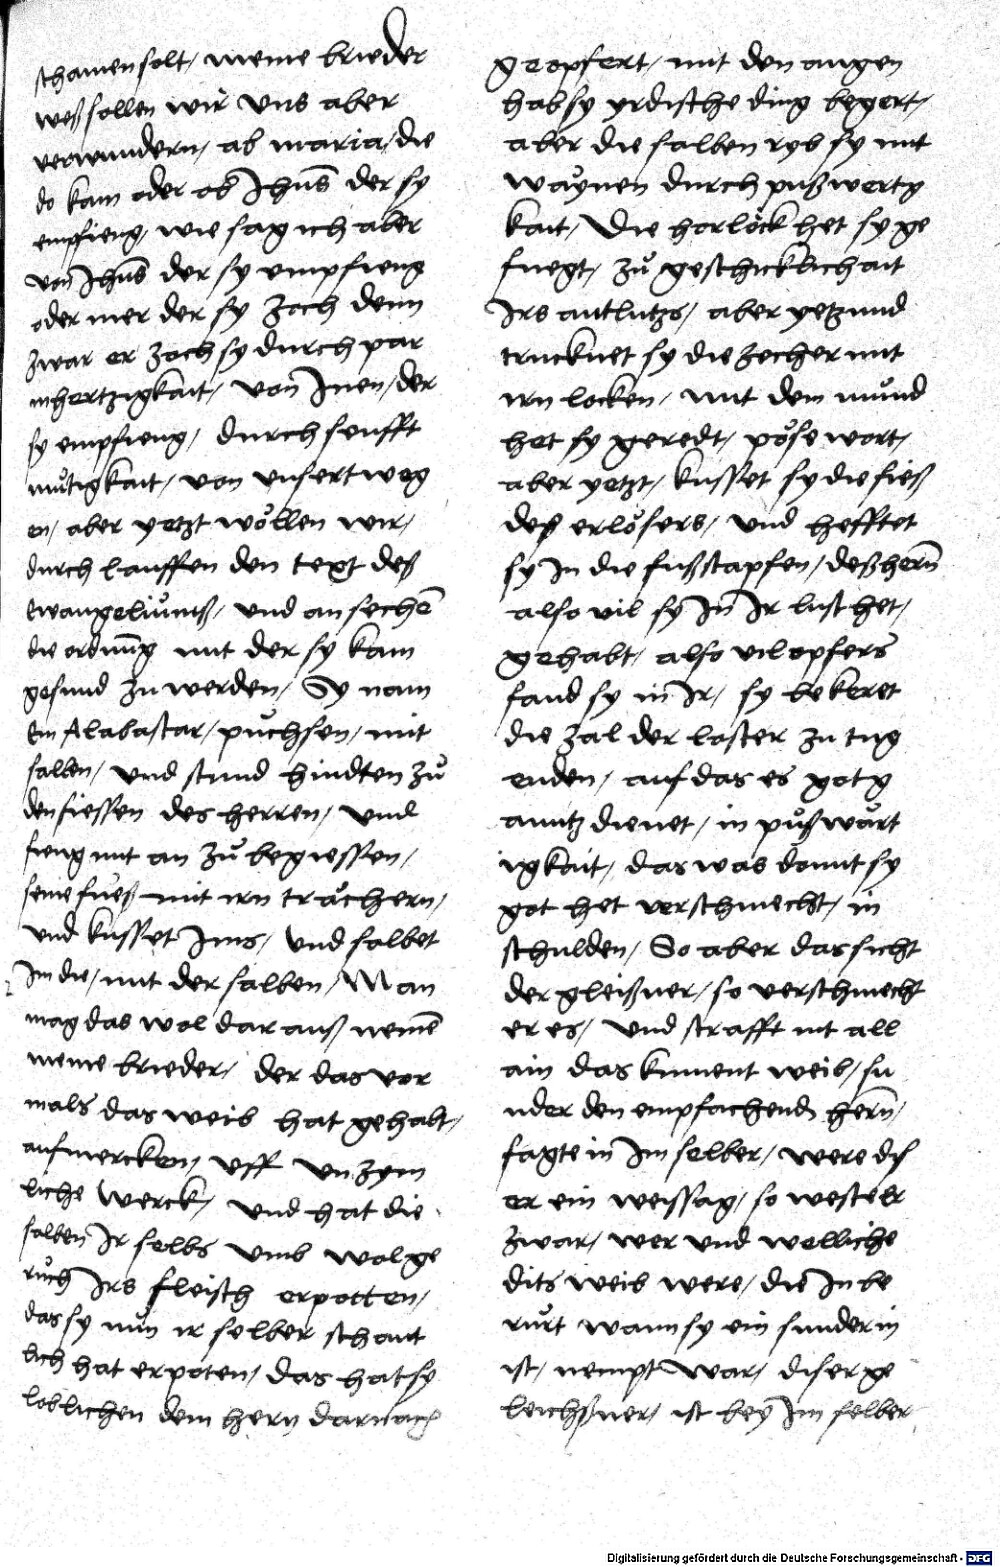 schamen solt / meine brieder
weß sollen wir vns aber
verwundern / ab maria / die
do kam oder ob Jhus̄ der sy
empfieng / wie sag ich aber
von Jhus̄ der sy empfieng
oder mer der sy zoch denn
zwar er zoch sy durch par
mhertzigkait / von Jnen / der
sy empfieng / durch senfft
mu̇tigkait / von vnsert weg
en / aber yetzt wöllen wir /
durch lauffen den text deß
Ewangeliu̇mß / vnd an sechē
die ordnūg mit der sy kam
gesund zu werden / Sy nam
Ein Alabastar / pu̇chsen / mit
salben / vnd stund hindten zů
den fiessen des herren / vnd
fieng mit an zů begiessen /
seine fu̇eß mit irn trächern /
vnd kusset Jms / Vnd salbet
Jm die / mit der salben / Man
mag das wol dar auß nemē
meine brieder / der das vor
mals das weib hat gehabt /
aufmercken / vff vnzym
liche werck / vnd hat die
salben Jr selbs vmb wolge
ru̇ch Jrs fleisch erpotten /
das sy nu̇n ir selber schant
lich hat erpoten / das hat sy
loblichen dem hern darnach
geopfert / mit den augen
hab sy yrdische ding begert /
aber die salben ryb sy mit
waynen durch pußwertg
kait / Die horlöck het sy ge
fuegt / zů geschicklichait
Jrs antlutzs / aber yetzund
trucknet sy die zecher mit
irn locken / mit dem mu̇nd
het sy geredt / pöse wort /
aber yetzt / kusset sy die fieß
deß erlösers / vnd hefftet
sy Jn die fußstapfen / deß hern̄
also vil sy Jn Jr lust het /
gehabt / also vil opfers
fand sy in Jr / sy bekeret
die zal der laster zu tug
enden / auf das es gotg
anntz dienet / in pu̇ßwu̇rt
igkait / das was damit sy
got het verschmecht / in
schulden / So aber das sicht
der gleißner / so verschmecht
er es / vnd strafft nit all
ain das kument weib / su
nder den empfachend hern̄ /
sagte in Jm selber / were dis
er ein weissag / so wester
zwar / wer vnd welliche
dits weib were / die Jn be
ru̇rt wann sy ein sunderin
ist / nempt war / diser ge
leichßner / ist bey Jm selber
Digitalisierung gefördert durch die Deutsche Forschungsgemeinschaft - DFG